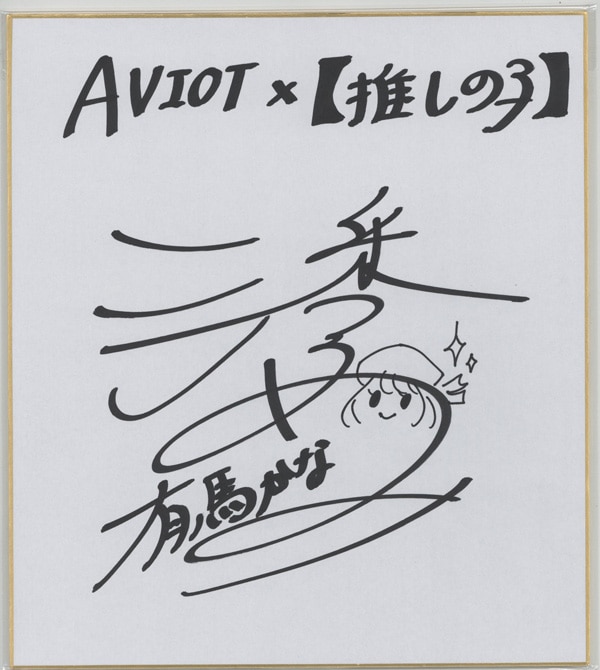 AVIOT×【推しの子】
有馬かな